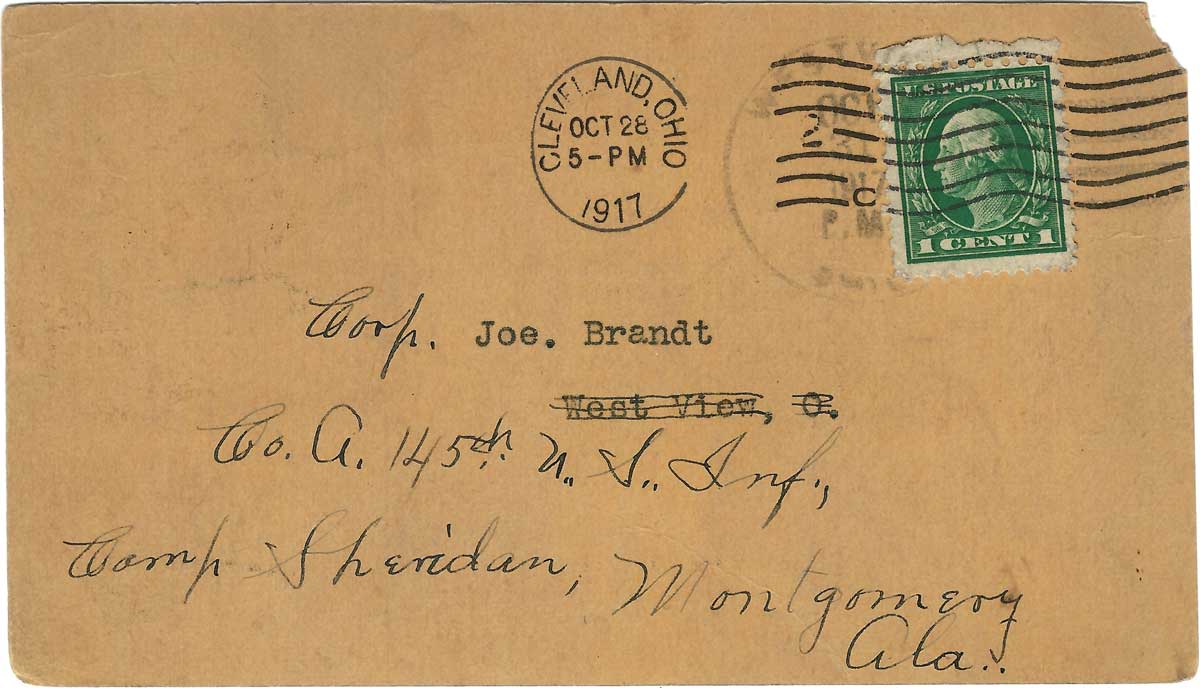 CLEVELAND, OHIO
OCT 28
5-PM
1917
OCT
1917
P.M.
U.S. POSTAGE
1 CENT 1
Corp. Joe. Brandt
West View, O.
Co. A. 145th U.. S.. Inf.,
Camp Sheridan, Montgomery
Ala..